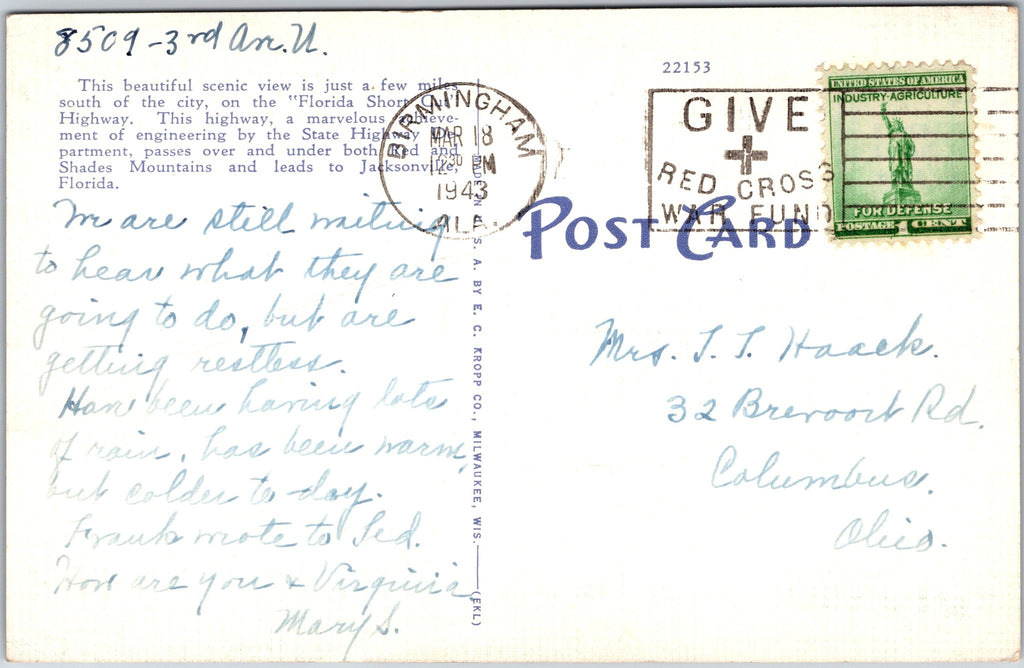 8509 - 3rd Ave. N.
This beautiful scenic view is just a few miles
south of the city, on the "Florida Short Cut"
Highway. This highway, a marvelous achieve-
ment of engineering by the State Highway De-
partment, passes over and under both Red and
Shades Mountains and leads to Jacksonville,
Florida.
We are still waiting
to hear what they are
going to do, but are
getting restless.
Have been having lots
of rain, has been warm,
but colder to-day.
Frank wrote to Ted.
How are you & Virginia
Mary S.
S. A. BY E. C. KROPP CO., MILWAUKEE, WIS.
(EKL)
BIRMINGHAM
MAR 18
12 30 PM
1943
ALA.
22153
GIVE
RED CROSS
WAR FUND
UNITED STATES OF AMERICA
INDUSTRY-AGRICULTURE
FOR DEFENSE
POSTAGE 1 CENT
POST CARD
Mrs. T. T. Haack.
32 Brevoort Rd.
Columbus.
Ohio.